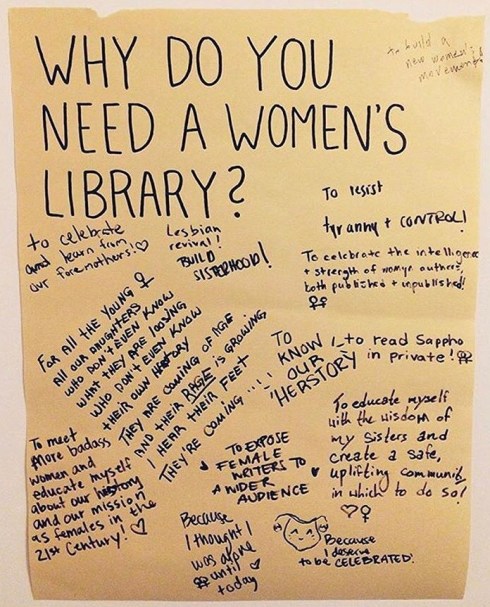 WHY DO YOU
NEED A WOMEN'S
LIBRARY?
to build a
new women's
movement!
To resist
tyranny + CONTROL!
to celebrate
and learn from
our foremothers!
Lesbian
revival!
BUILD
SISTERHOOD!
To celebrate the intelligence
+ strength of womyn authors,
both published + unpublished!
FOR All the YOUNG ♀
All our DAUGHTERS
WHO DON'T EVEN KNOW
WHAT THEY ARE LOOKING
WHO DON'T EVEN KNOW
THEIR OWN HERSTORY
THEY ARE COMING OF AGE
AND THEIR RAGE IS GROWING,
I HEAR THEIR FEET
THEY'RE COMING...!
TO
KNOW
OUR
'HERSTORY
to read Sappho
in private!
To meet
more badass
women and
educate myself
about our herstory
and our mission
as females in the
21st Century!
To educate myself
with the wisdom of
my sisters and
create a safe,
uplifting community
in which to do so!
♀
TO EXPOSE
FEMALE
WRITERS TO
A WIDER
AUDIENCE
Because
I thought I
was alone
until
today
Because
I deserve
to be CELEBRATED.